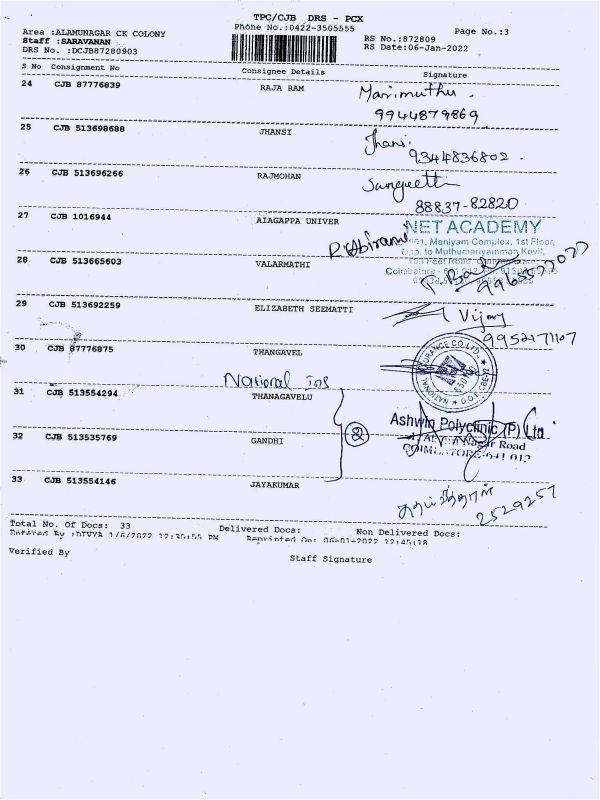 TPC/CJB DRS - PCX
Phone No.:0422-3505555
Page No.:3
Area :ALAMUNAGAR CK COLONY
RS No.:872809
Staff :SARAVANAN
RS Date:06-Jan-2022
DRS No. :DCJB87280903
S No Consignment No Consignee Details Signature
24 CJB 87776839 RAJA RAM Marimuthu.
9944879869
25 CJB 513698688 JHANSI Jhansi
9344836802.
26 CJB 513696266 RAJMOHAN Sangeeth
88837-82820
27 CJB 1016944 AIAGAPPA UNIVER
NET ACADEMY
Maniyam Complex, 1st Floor,
Opp. to Muthumariyamman Kovil,
Coimbatore
28 CJB 513665603 VALARMATHI
29 CJB 513692259 ELIZABETH SEEMATTI Vijay
9952171107
30 CJB 87776875 THANGAVEL
NATIONAL INSURANCE CO. LTD.
National Ins
31 CJB 513554294 THANAGAVELU
Ashwin Polyclinic (P) Ltd
Nagar Road
COIMBATORE-641 012
32 CJB 513535769 GANDHI
33 CJB 513554146 JAYAKUMAR
2529257
Total No. Of Docs: 33 Delivered Docs: Non Delivered Docs:
Entered By :DIVYA 1/6/2022 12:35:55 PM Reprinted On: 06-01-2022 12:45:18
Verified By Staff Signature